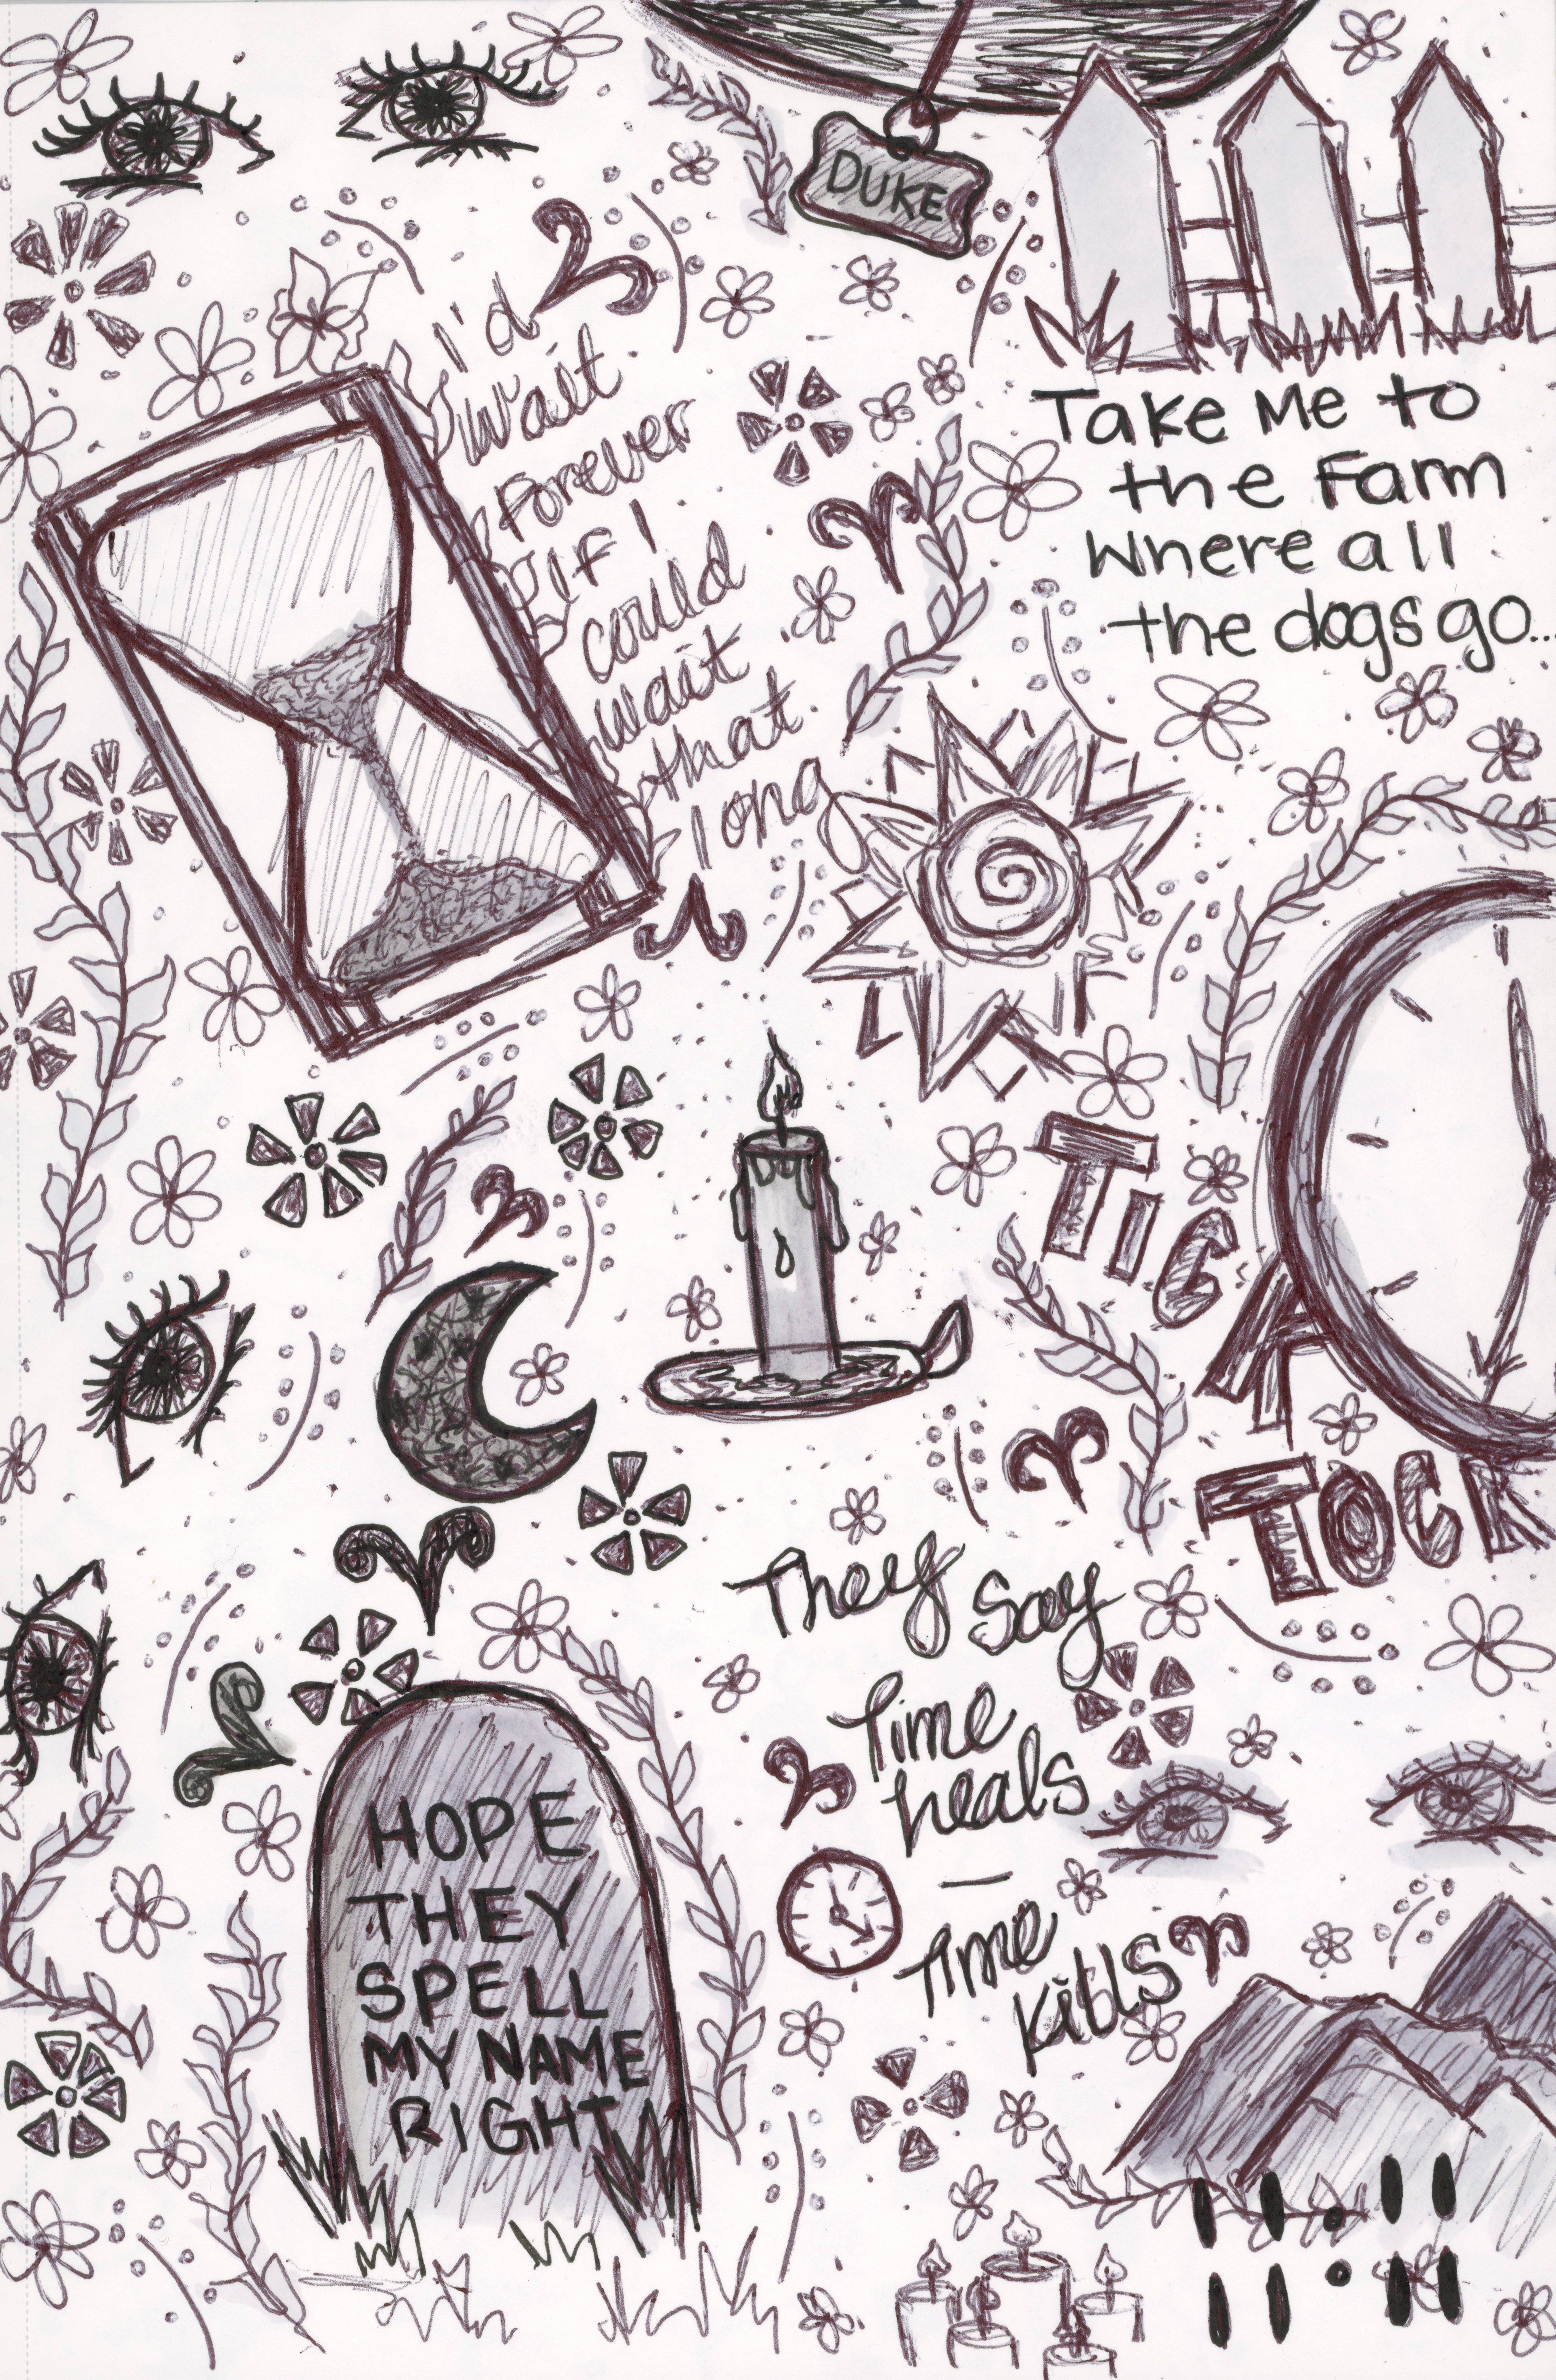 DUKE
I'd
wait
forever
if I
could
wait
that
long
Take Me to
the Farm
Where all
the dogs go...
TIC
TOCK
They say
Time
heals
—
Time
kills
HOPE
THEY
SPELL
MY NAME
RIGHT
11:11